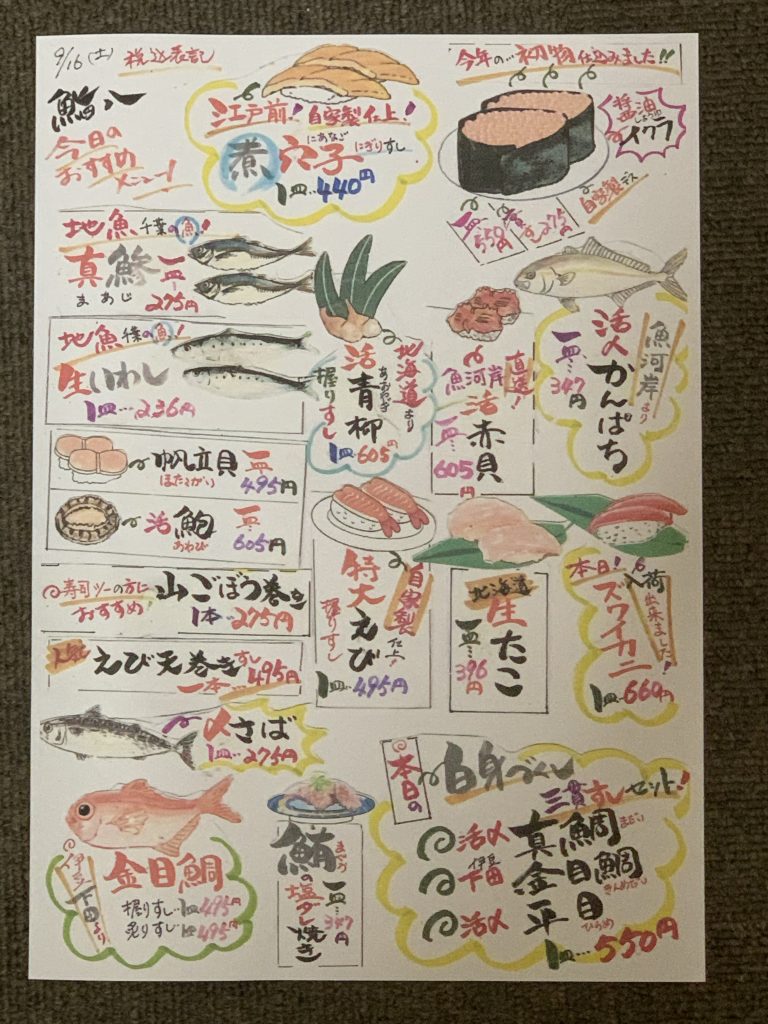 9/16(土) 税込表記
鮨八
今日の
おすすめ
メニュー!
江戸前! 自家製仕上!
にあなご
煮穴子 にぎりすし
1皿…440円
今年の…初物仕込みました!!
醤油
しょうゆ
イクラ
1皿…550円
275円
自家製デス
地魚 千葉の魚!
真鯵
まあじ
一皿…275円
地魚 千葉の魚!
生いわし
1皿…236円
帆立貝
ほたてがい
一皿…495円
活鮑
あわび
一皿…605円
寿司ツーの方に
おすすめ!
山ごぼう巻き
1本…275円
人気
えび天巻きすし
一本…495円
〆さば
1皿…275円
北海道より
活青柳
あおやぎ
握りすし
1皿…605円
魚河岸直送!
活赤貝
一皿…605円
魚河岸より
活〆かんぱち
一皿…347円
自家製仕上!
特大えび
握りすし
1皿…495円
北海道
生たこ
一皿…396円
本日!入荷出来ました!
ズワイカニ
1皿…660円
伊豆下田より
金目鯛
握りすし…1皿495円
炙りすし…1皿495円
まぐろ
鮪の塩ダレ焼き
一皿…347円
本日の
白身づくし
三貫すしセット!
活〆 真鯛 まだい
伊豆
下田 金目鯛 きんめだい
活〆 平目 ひらめ
1皿…550円